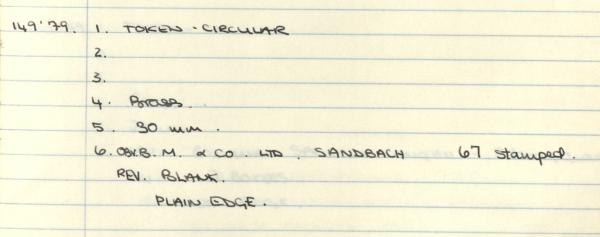 149'79. 1. TOKEN - CIRCULAR
2.
3.
4. Brass.
5. 30 mm.
6. Obv. B. M. & CO. LTD. SANDBACH 67 stamped.
REV. BLANK.
PLAIN EDGE.